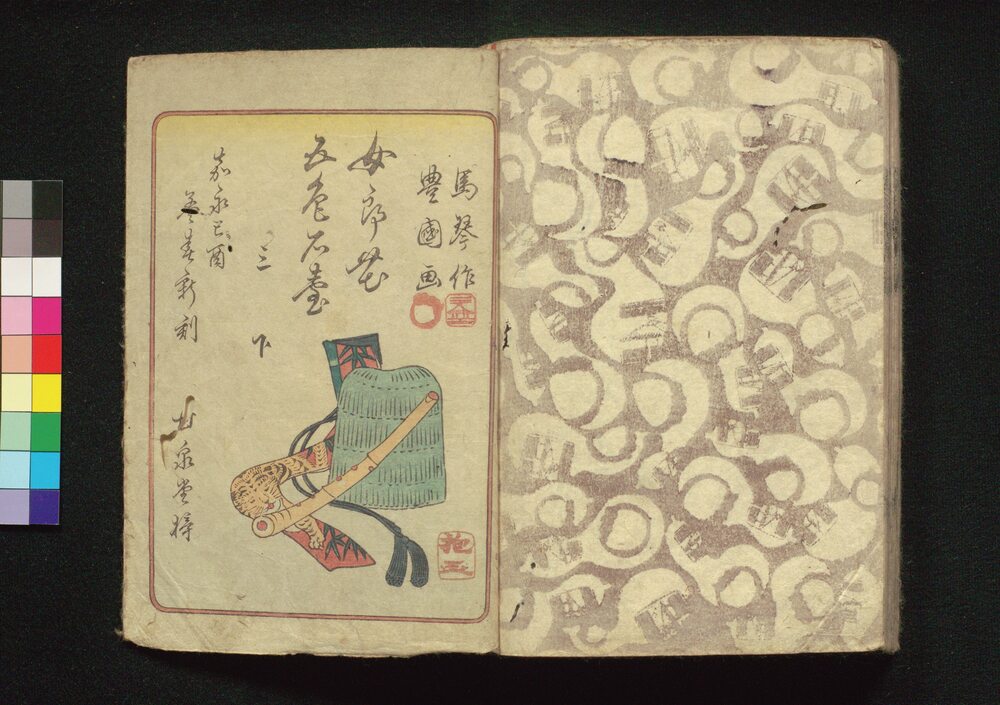 馬琴作
豊國画
女郎花
五色石臺
三
下
嘉永己酉
孟春新刻
甘泉堂梓